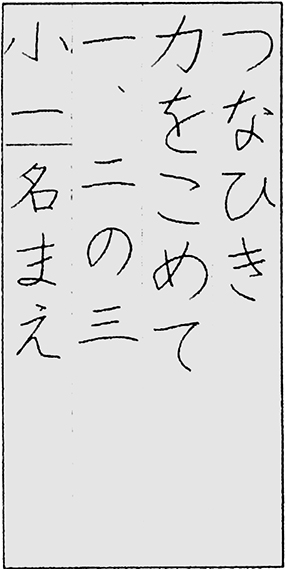 つなひき
力をこめて
一、二の三
小一 名まえ